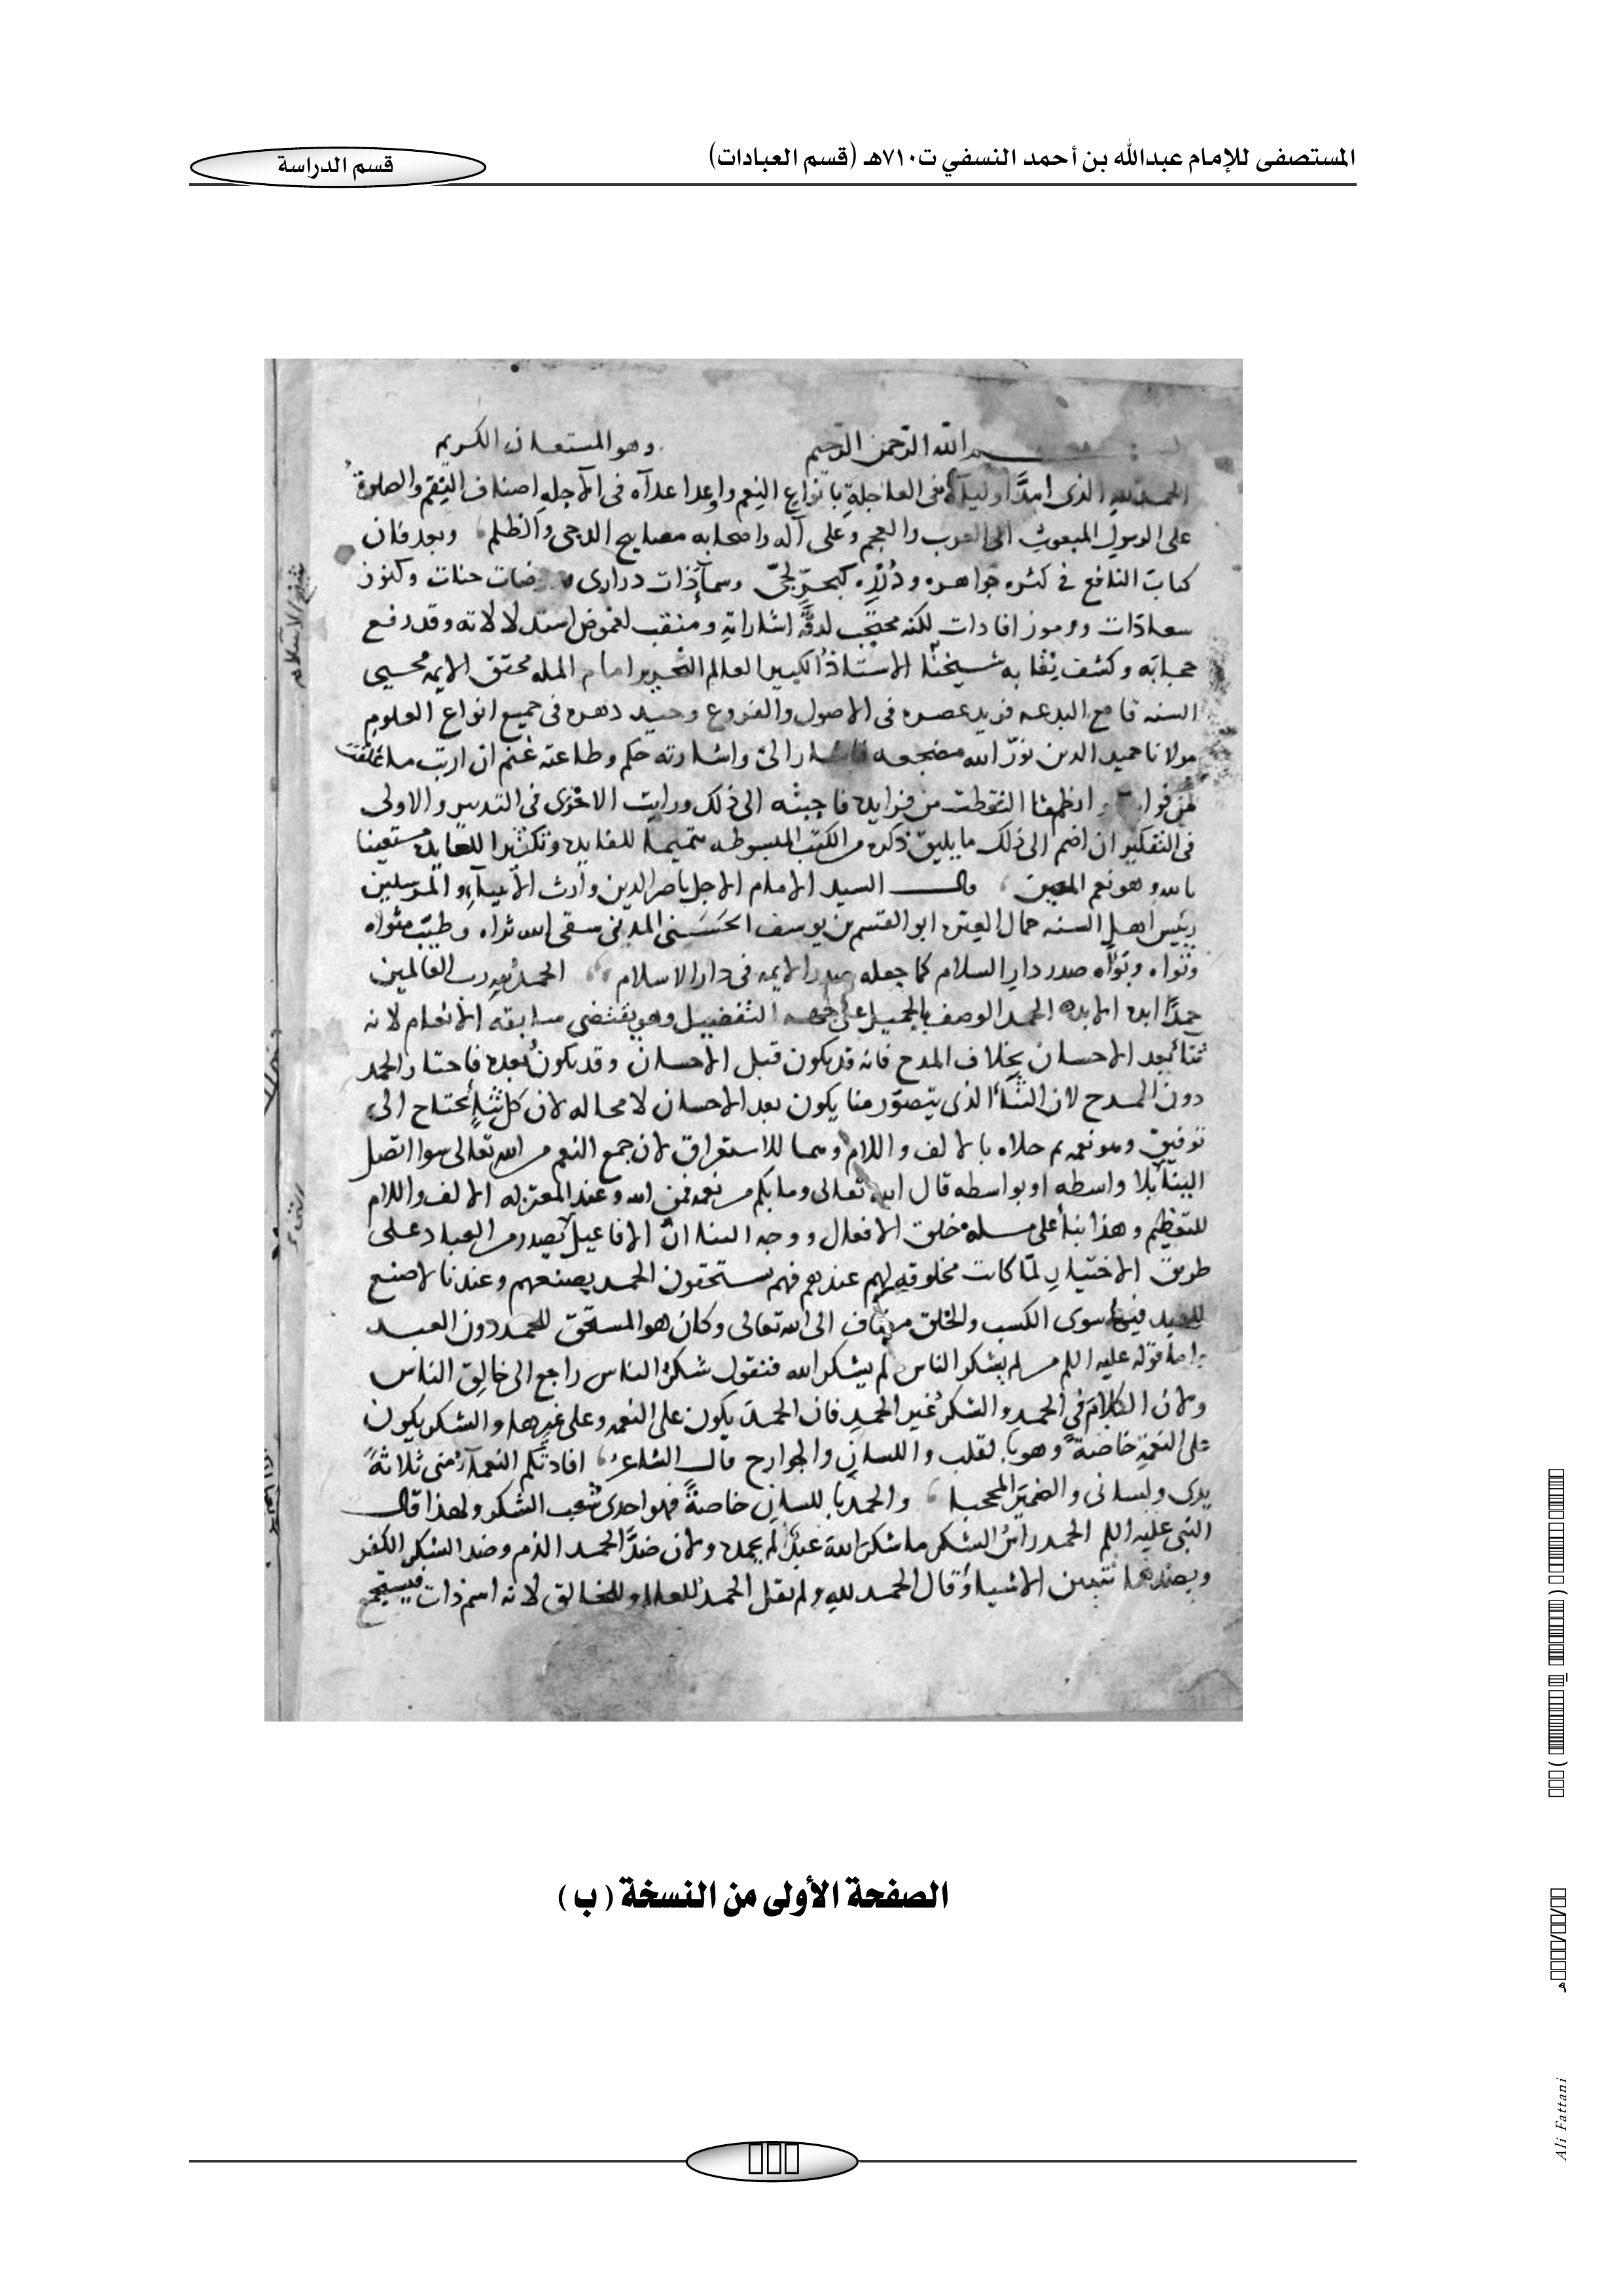 المستصفى للإمام عبدالله بن أحمد النسفي ت٧١٠هـ (قسم العبادات)
قسم الدراسة
الله الرحمن الرحيم وهو المستعان الكريم
الحمد لله الذى اولياه فى العاجلة بانواع النعم واوعد اعداه فى الآجله اصناف النقم والصلوة
على الرسول المبعوث الى العرب والعجم وعلى آله واصحابه مصابيح الدجى والظلم وبعد فان
كتاب النافع فى كثره جواهره كبحر لجى وسماء ذات درارى جنات وكنوز
سعادات ورموز افادات لكنه محتجب لدقه اشاراته ومنقب لغموض استدلالاته وقد رفع
حجابه وكشف نقابه شيخنا الاستاذ الكبير العالم النحرير امام المله محقق الايمه محيى
السنه قامع البدعه فريد عصره فى الاصول والفروع وحيد دهره فى جميع انواع العلوم
مولانا حميد الدين نور الله مضجعه الى واشارته حكم وطاعته غنم ان ارتب ما
التقطت من فرايده فاجبته الى ذلك ورايت الاحرى فى التدبير والاولى
فى التفكير ان اضم الى ذلك ما يليق ذكره من الكتب المبسوطه تتميما للفايده وتكثيرا مستعينا
بالله وهو نعم المعين قال السيد الامام الاجل ناصر الدين وارث الانبياء والمرسلين
رييس اهل السنه جمال العتره ابو القسم بن يوسف الحسنى المدنى سقى الله ثراه وطيب مثواه
وبوأه صدر دار السلام كما جعله صدر الايمه فى دار الاسلام الحمد لله رب العالمين
حمدا ابد الابده الحمد الوصف بالجميل على جهه التفضيل وهو يقتضى سابقه الانعام لانه
ثنا بعد الاحسان بخلاف المدح فانه قد يكون قبل الاحسان وقد يكون بعده فاختار الحمد
دون المدح لان الثناء الذى يتصور منا يكون بعد الاحسان لا محاله لان كل ثناء يحتاج الى
توفيق وهو نعمه ثم حلاه بالالف واللام وهما للاستغراق لان جميع النعم من الله تعالى سوا اتصل
الينا بلا واسطه او بواسطه قال الله تعالى وما بكم من نعمه فمن الله وعند المعتزله الالف واللام
للتعظيم وهذا بنا على مسله خلق الافعال ووجه البنا ان الافاعيل تصدر من العباد على
طريق الاختيار لما كانت مخلوقه لهم عندهم فهم يستحقون الحمد بصنعهم وعندنا لا صنع
للعبد فيها سوى الكسب والخلق مضاف الى الله تعالى وكان هو المستحق للحمد دون العبد
واما قوله عليه السلم من لم يشكر الناس لم يشكر الله فنقول شكر الناس راجع الى خالق الناس
ولان الكلام فى الحمد والشكر غير الحمد فان الحمد يكون على النعمه وعلى غيرها والشكر يكون
على النعمة خاصة وهو بالقلب واللسان والجوارح قال الشاعر افادتكم النعماء منى ثلاثة
يدى ولسانى والضمير المحجبا والحمد باللسان خاصة فهو احدى شعب الشكر ولهذا قال
النبى عليه السلم الحمد راس الشكر ما شكر الله عبد لم يحمده ولان ضد الحمد الذم وضد الشكر الكفر
وبضدها تتبين الاشياء وقال الحمد لله ولم يقل الحمد وللخالق لانه اسم ذات فيستجمع
الصفحة الأولى من النسخة ( ب )
Ali Fattani